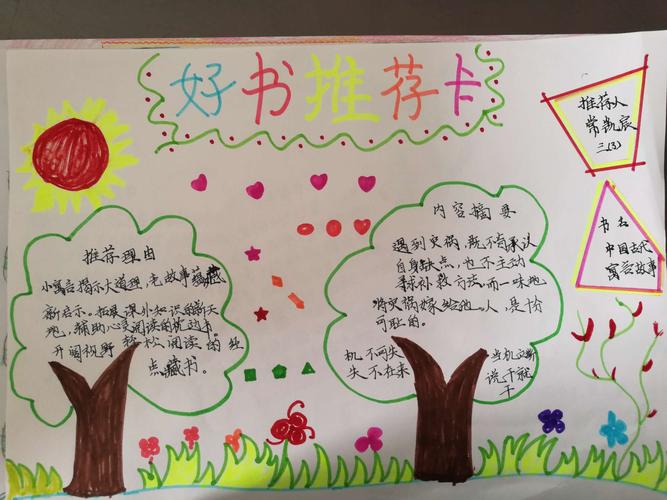 好书推荐卡
推荐人
常凯宸
三(3)
书名
中国古代
寓言故事
推荐理由
小寓言揭示大道理,老故事蕴藏
新启示。拓展课外知识的新天
地,辅助心灵阅读的
开阔视野 轻松阅读的经
点藏书。
内容摘要
遇到灾祸,既不肯承认
自身缺点,也不主动
寻求补救方法,而一味地
将灾祸嫁给他人,是
可耻的。
机不可失 当机立断
失不在来 说干就
干